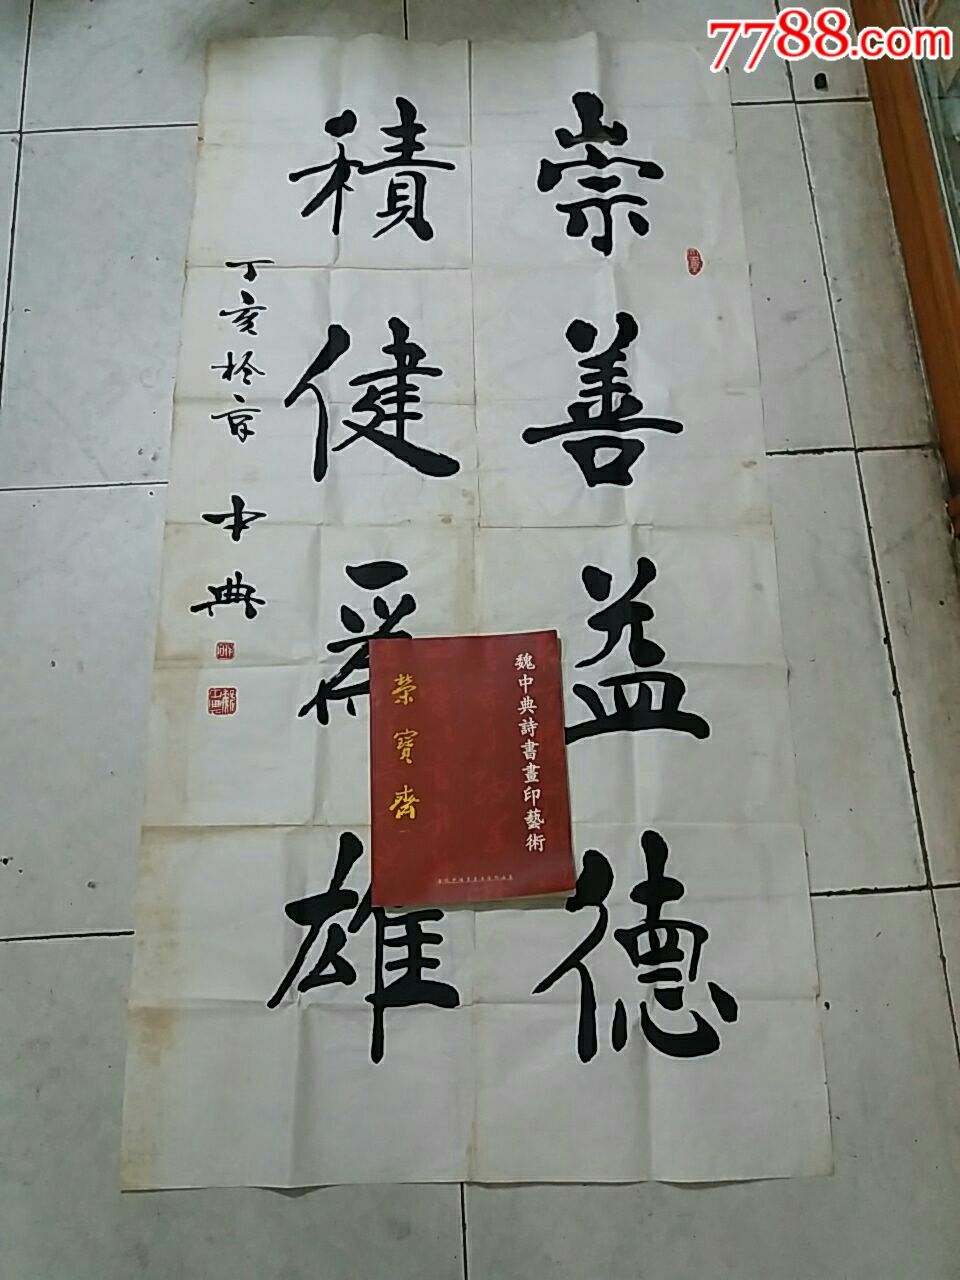 7788.com
崇善益德
積健為雄
丁亥於京 中典
魏中典詩書畫印藝術
榮寶齋